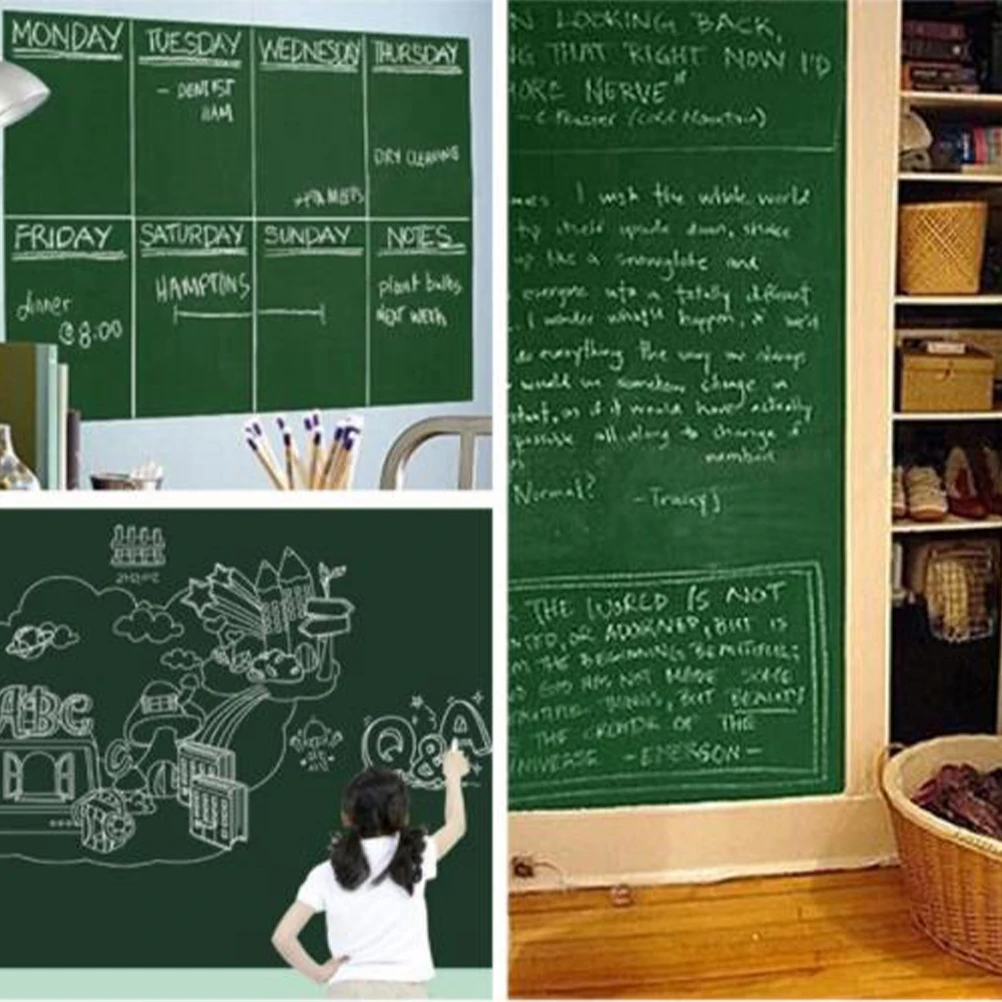 MONDAY
TUESDAY
WEDNESDAY
THURSDAY
- DENTIST
11AM
DRY CLEANING
FRIDAY
SATURDAY
SUNDAY
NOTES
dinner
@8:00
HAMPTONS
plant bulbs
NEXT WEEK
ABC
Q&A
N LOOKING BACK,
G THAT RIGHT NOW I'D
ORE NERVE"
I wish the whole world
itself upside down, shake
a snowglobe and
everyone into a totally different
I wonder what'd happen, if we'd
everything the way we always
would we somehow change in
as if it would have actually
possible all along to change
Normal? -Tracey J
THE WORLD IS NOT
TED, OR ADORNED, BUT IS
M THE BEGINNING BEAUTIFUL;
GOD HAS NOT MADE SOME
THINGS, BUT BEAUTY
THE CREATOR OF THE
NIVERSE -EMERSON-